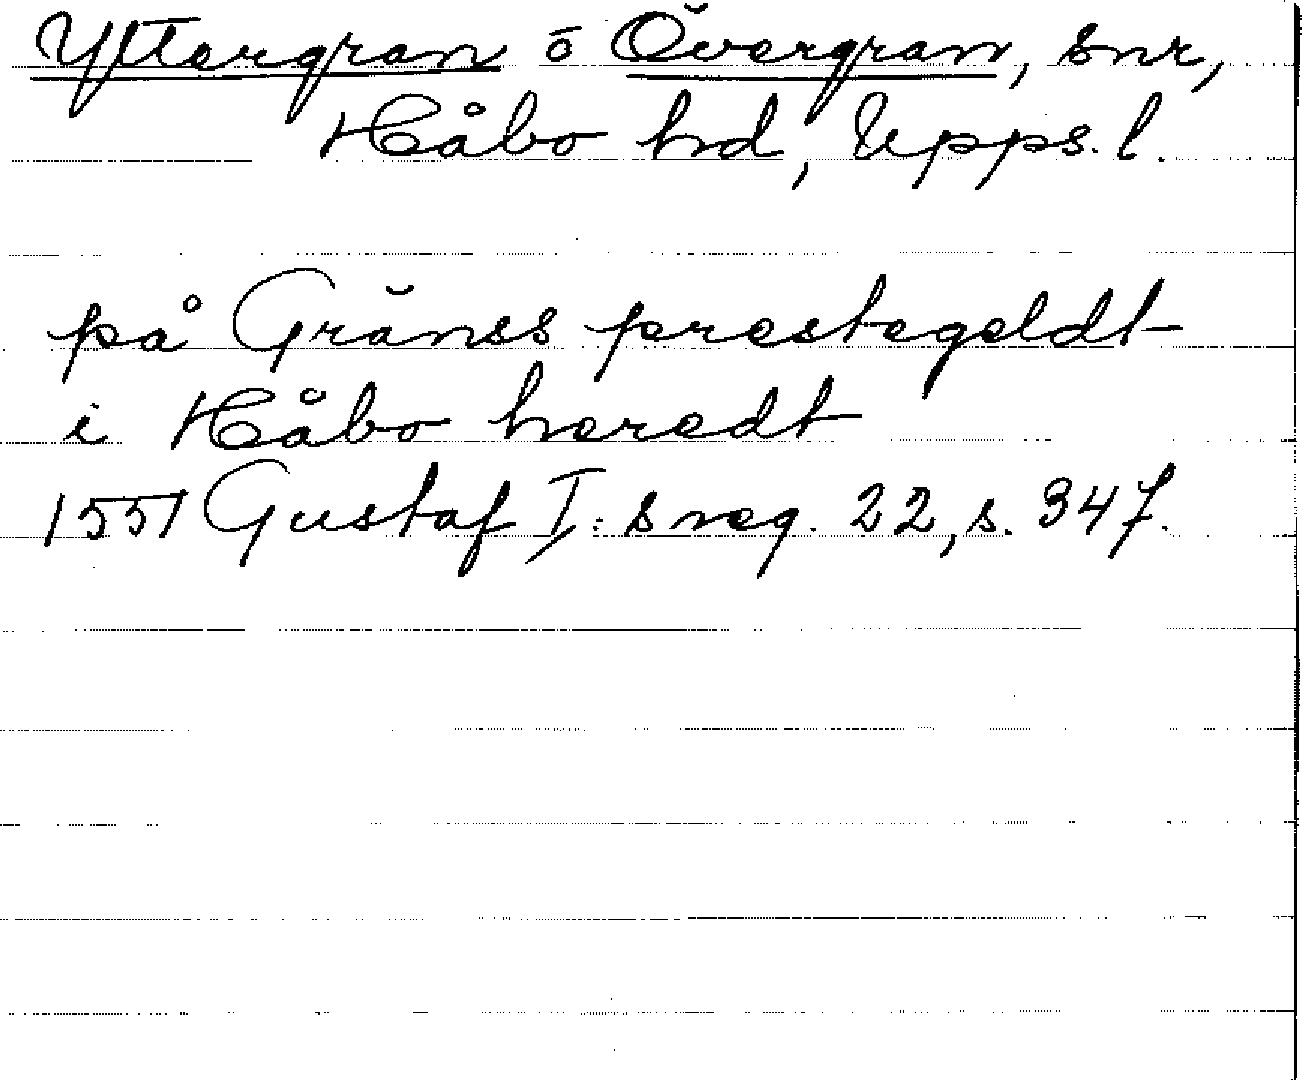 Yttergran o Övergran, snr,
Håbo hd, Upps. l.
på Gränss prestegeldt
i Håbo heredt
1551 Gustaf I: s reg. 22, s. 347.